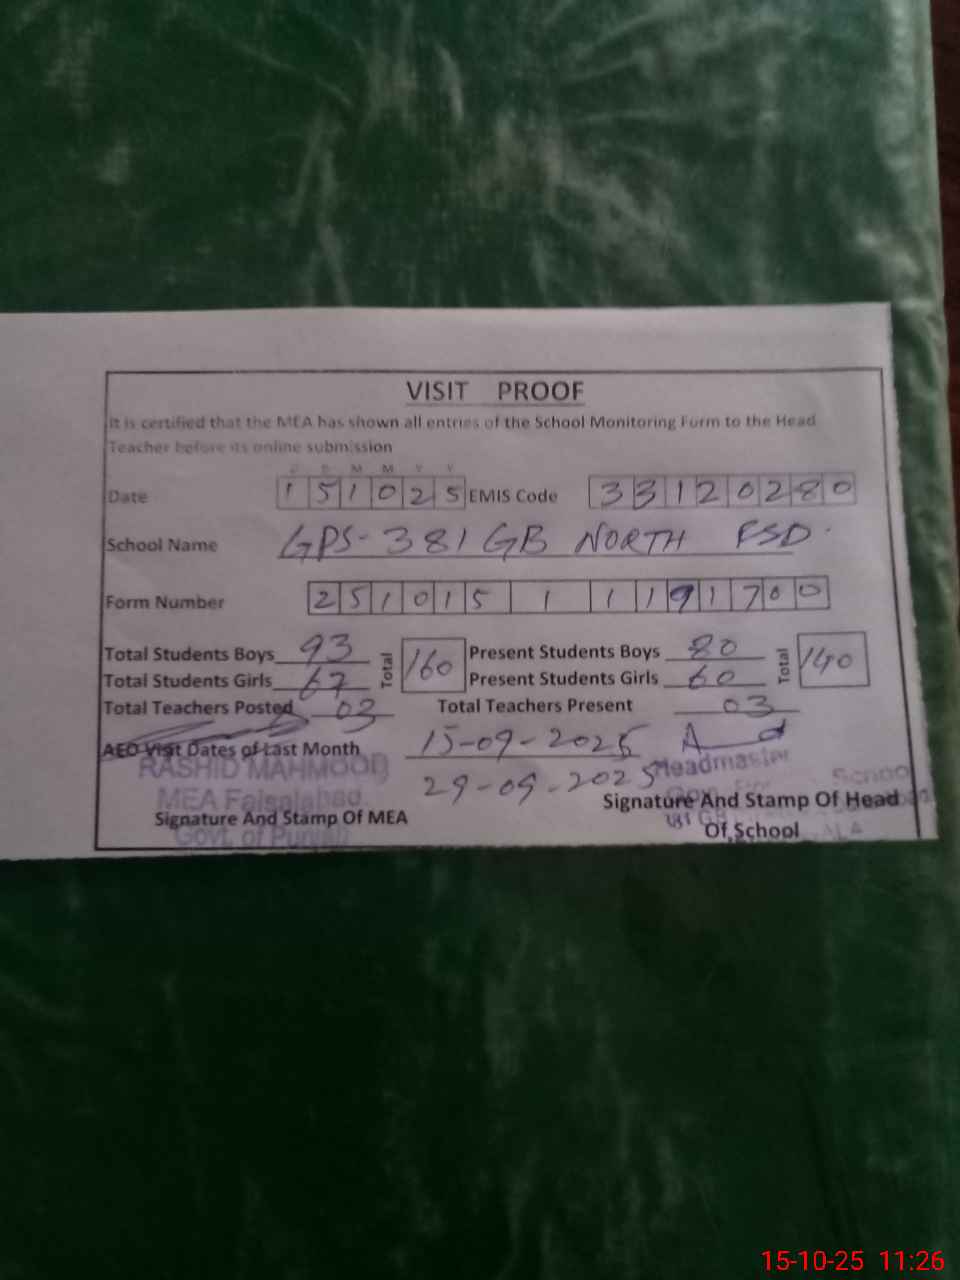 VISIT PROOF
It is certified that the MEA has shown all entries of the School Monitoring Form to the Head
Teacher before its online submission
D D M M Y Y
Date 151025 EMIS Code 33120280
School Name GPS-381 GB NORTH FSD.
Form Number 251015 1 1191700
Total Students Boys 93 Total 160 Present Students Boys 80 Total 140
Total Students Girls 67 Present Students Girls 60
Total Teachers Posted 03 Total Teachers Present 03
AEO Visit Dates of Last Month 15-09-2025
29-09-2025
RASHID MAHMOOD
MEA Faisalabad
Govt. of Punjab
Signature And Stamp Of MEA
Headmaster
School
Signature And Stamp Of Head
Of School
15-10-25 11:26